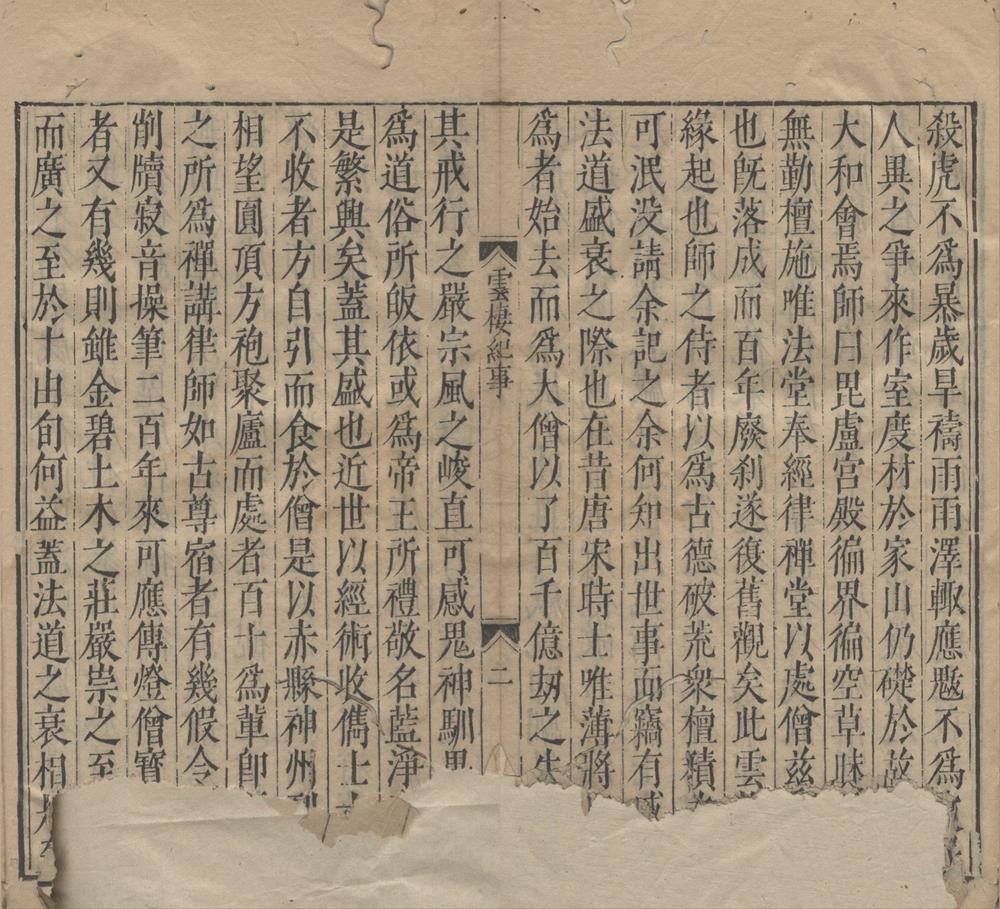 殺虎不爲暴歲旱禱雨雨澤輙應魃不爲
人異之爭來作室度材於家山仍礎於故
大和會焉師曰毘盧宮殿徧界徧空草昧
無勤檀施唯法堂奉經律禪堂以處僧兹
也旣落成而百年廢刹遂復舊觀矣此雲
緣起也師之侍者以爲古德破荒衆檀積
可泯没請余記之余何知出世事而竊有感
法道盛衰之際也在昔唐宋時士唯薄將
爲者始去而爲大僧以了百千億劫之生
雲棲紀事
二
其戒行之嚴宗風之峻直可感鬼神馴
爲道俗所皈依或爲帝王所禮敬名藍淨
是繁興矣蓋其盛也近世以經術收儁士
不收者方自引而食於僧是以赤縣神州
相望圓頂方袍聚廬而處者百十爲軰卽
之所爲禪講律師如古尊宿者有幾假令
削牘寂音操筆二百年來可應傳燈僧寶
者又有幾則雖金碧土木之莊嚴崇之至
而廣之至於十由旬何益蓋法道之衰相